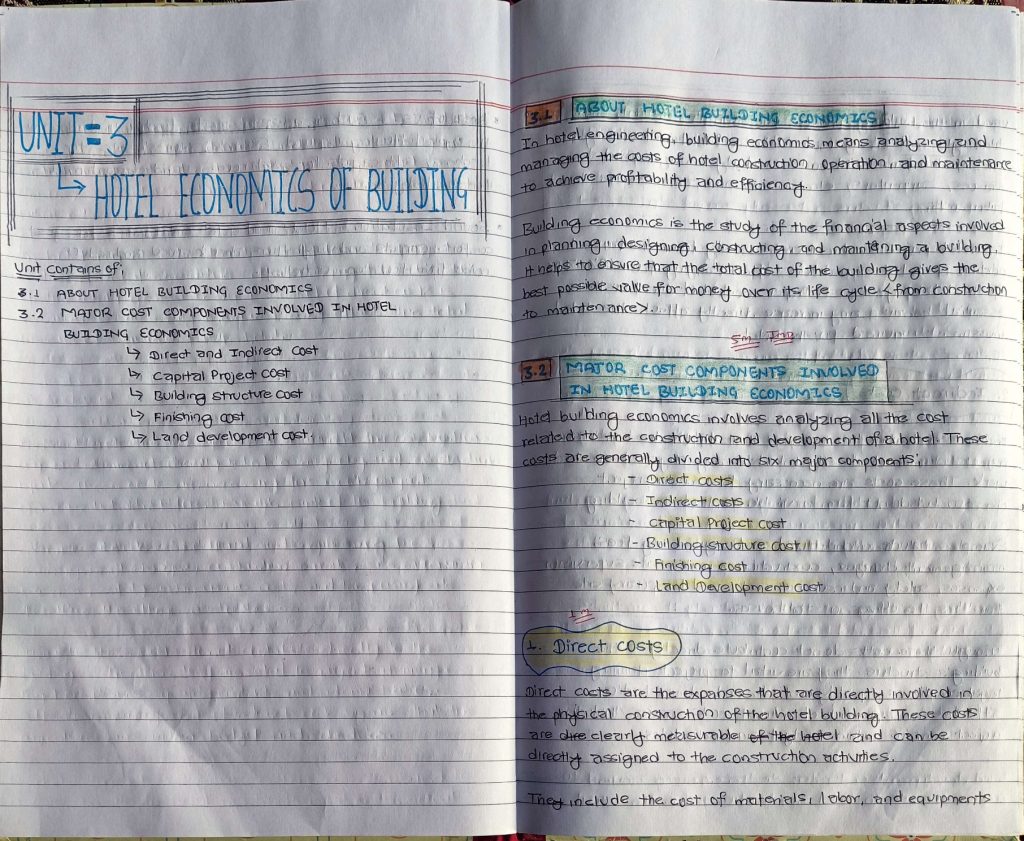 UNIT = 3
↳ HOTEL ECONOMICS OF BUILDING
Unit contains of;
3.1 ABOUT HOTEL BUILDING ECONOMICS
3.2 MAJOR COST COMPONENTS INVOLVED IN HOTEL
BUILDING ECONOMICS
↳ Direct and Indirect cost
↳ Capital Project cost
↳ Building structure cost
↳ Finishing cost
↳ Land development cost.
3.1 ABOUT HOTEL BUILDING ECONOMICS
In hotel engineering, building economics means analyzing and
managing the costs of hotel construction, operation, and maintenance
to achieve profitability and efficiency.
Building economics is the study of the financial aspects involved
in planning, designing, constructing, and maintaining a building.
It helps to ensure that the total cost of the building gives the
best possible value for money over its life cycle <from construction
to maintenance>.
5m Imp
3.2 MAJOR COST COMPONENTS INVOLVED
IN HOTEL BUILDING ECONOMICS
Hotel building economics involves analyzing all the cost
related to the construction and development of a hotel. These
costs are generally divided into six major components;
- Direct costs
- Indirect costs
- Capital Project cost
- Building structure cost
- Finishing cost
- Land Development cost
1. Direct costs
Direct costs are the expanses that are directly involved in
the physical construction of the hotel building. These costs
are clearly measurable of the hotel and can be
directly assigned to the construction activities.
They include the cost of materials, labor, and equipments